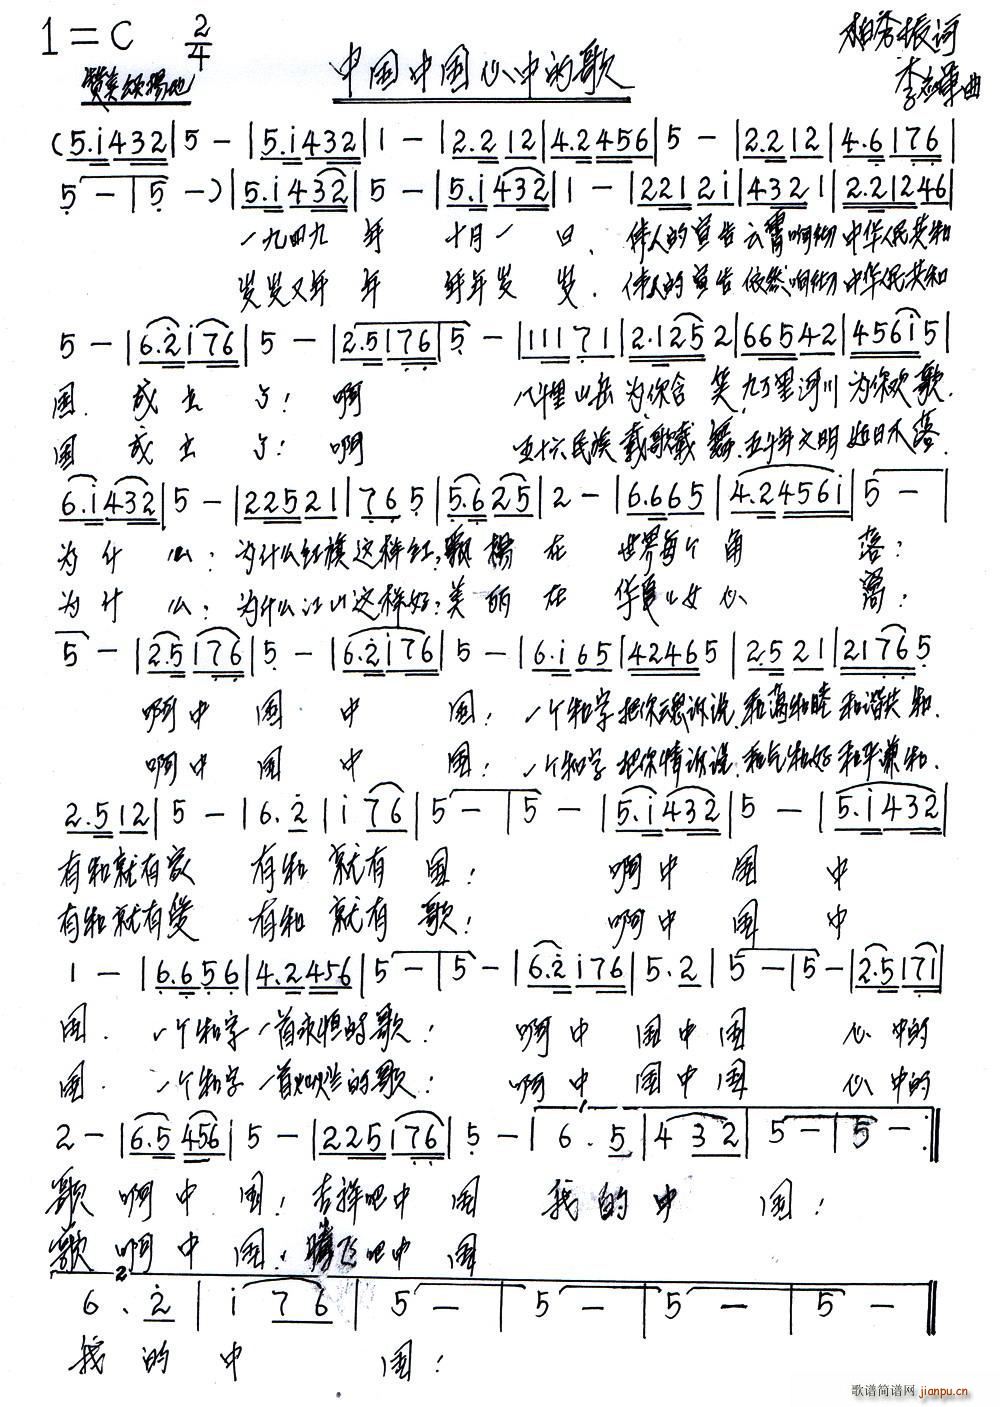 1=C 2/4
中国中国心中的歌
柏秀振词
李志军曲
赞美颂扬地
(5.i432|5 -|5.i432|1 -|2.212|4.2456|5 -|2.212|4.6176|
5 -|5 -)|5.i432|5 -|5.i432|1 -|2212i|4321|2.21246|
一九四九 年 十月一 日. 伟人的宣告云霄响彻中华人民共和
岁岁又年 年 年年岁 岁. 伟人的宣告依然响彻中华人民共和
5 -|6.2i76|5 -|2.5176|5 -|11171|2.1252|66542|456i5|
国. 成立了! 啊 八千里山岳为你含笑,九万里河川为你欢歌.
国 成立了! 啊 五十六民族载歌载舞.五千年文明如日不落.
6.i432|5 -|22521|765|5.625|2 -|6.665|4.2456i|5 -|
为什么: 为什么红旗这样红;飘扬在世界每个角落:
为什么: 为什么江山这样好;美丽在华夏儿女心窝:
5 -|2.5176|5 -|6.2i76|5 -|6.i65|42465|2.521|21765
啊中国中国: 一个和字把你魂诉说.和满和睦和谐共和.
啊中国中国: 一个和字把你情诉说.和气和好和平兼和.
2.512|5 -|6.2|i76|5 -|5 -|5.i432|5 -|5.i432|
有和就有家 有和就有国: 啊中国中
有和就有爱 有和就有歌: 啊中国中
1 -|6.656|4.2456|5 -|5 -|6.2i76|5.2|5 -|5 -|2.5171|
国. 一个和字一首永恒的歌: 啊中国中国 心中的
国. 一个和字一首灿烂的歌: 啊中国中国 心中的
2 -|6.5456i|5 -|225i76|5 -|6.5|432|5 -|5 -:‖
歌 啊中国: 吉祥吧中国 我的中国:
歌 啊中国: 腾飞吧中国
6.2|i76|5 -|5 -|5 -|5 -‖
我的中国:
歌谱简谱网 jianpu.cn